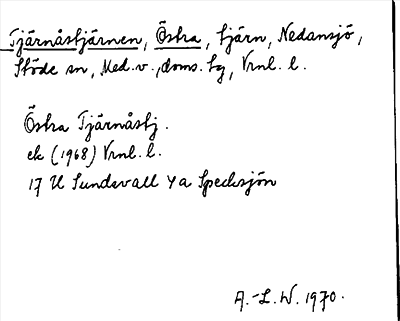 Tjärnåstjärnen, Östra, tjärn, Nedansjö,
Stöde sn, Med.v., doms. tg, Vrnl. l.
Östra Tjärnåstj.
ek (1968) Vrnl. l.
17 H Sundsvall 4 a Specksjön
A.-L. W. 1970.